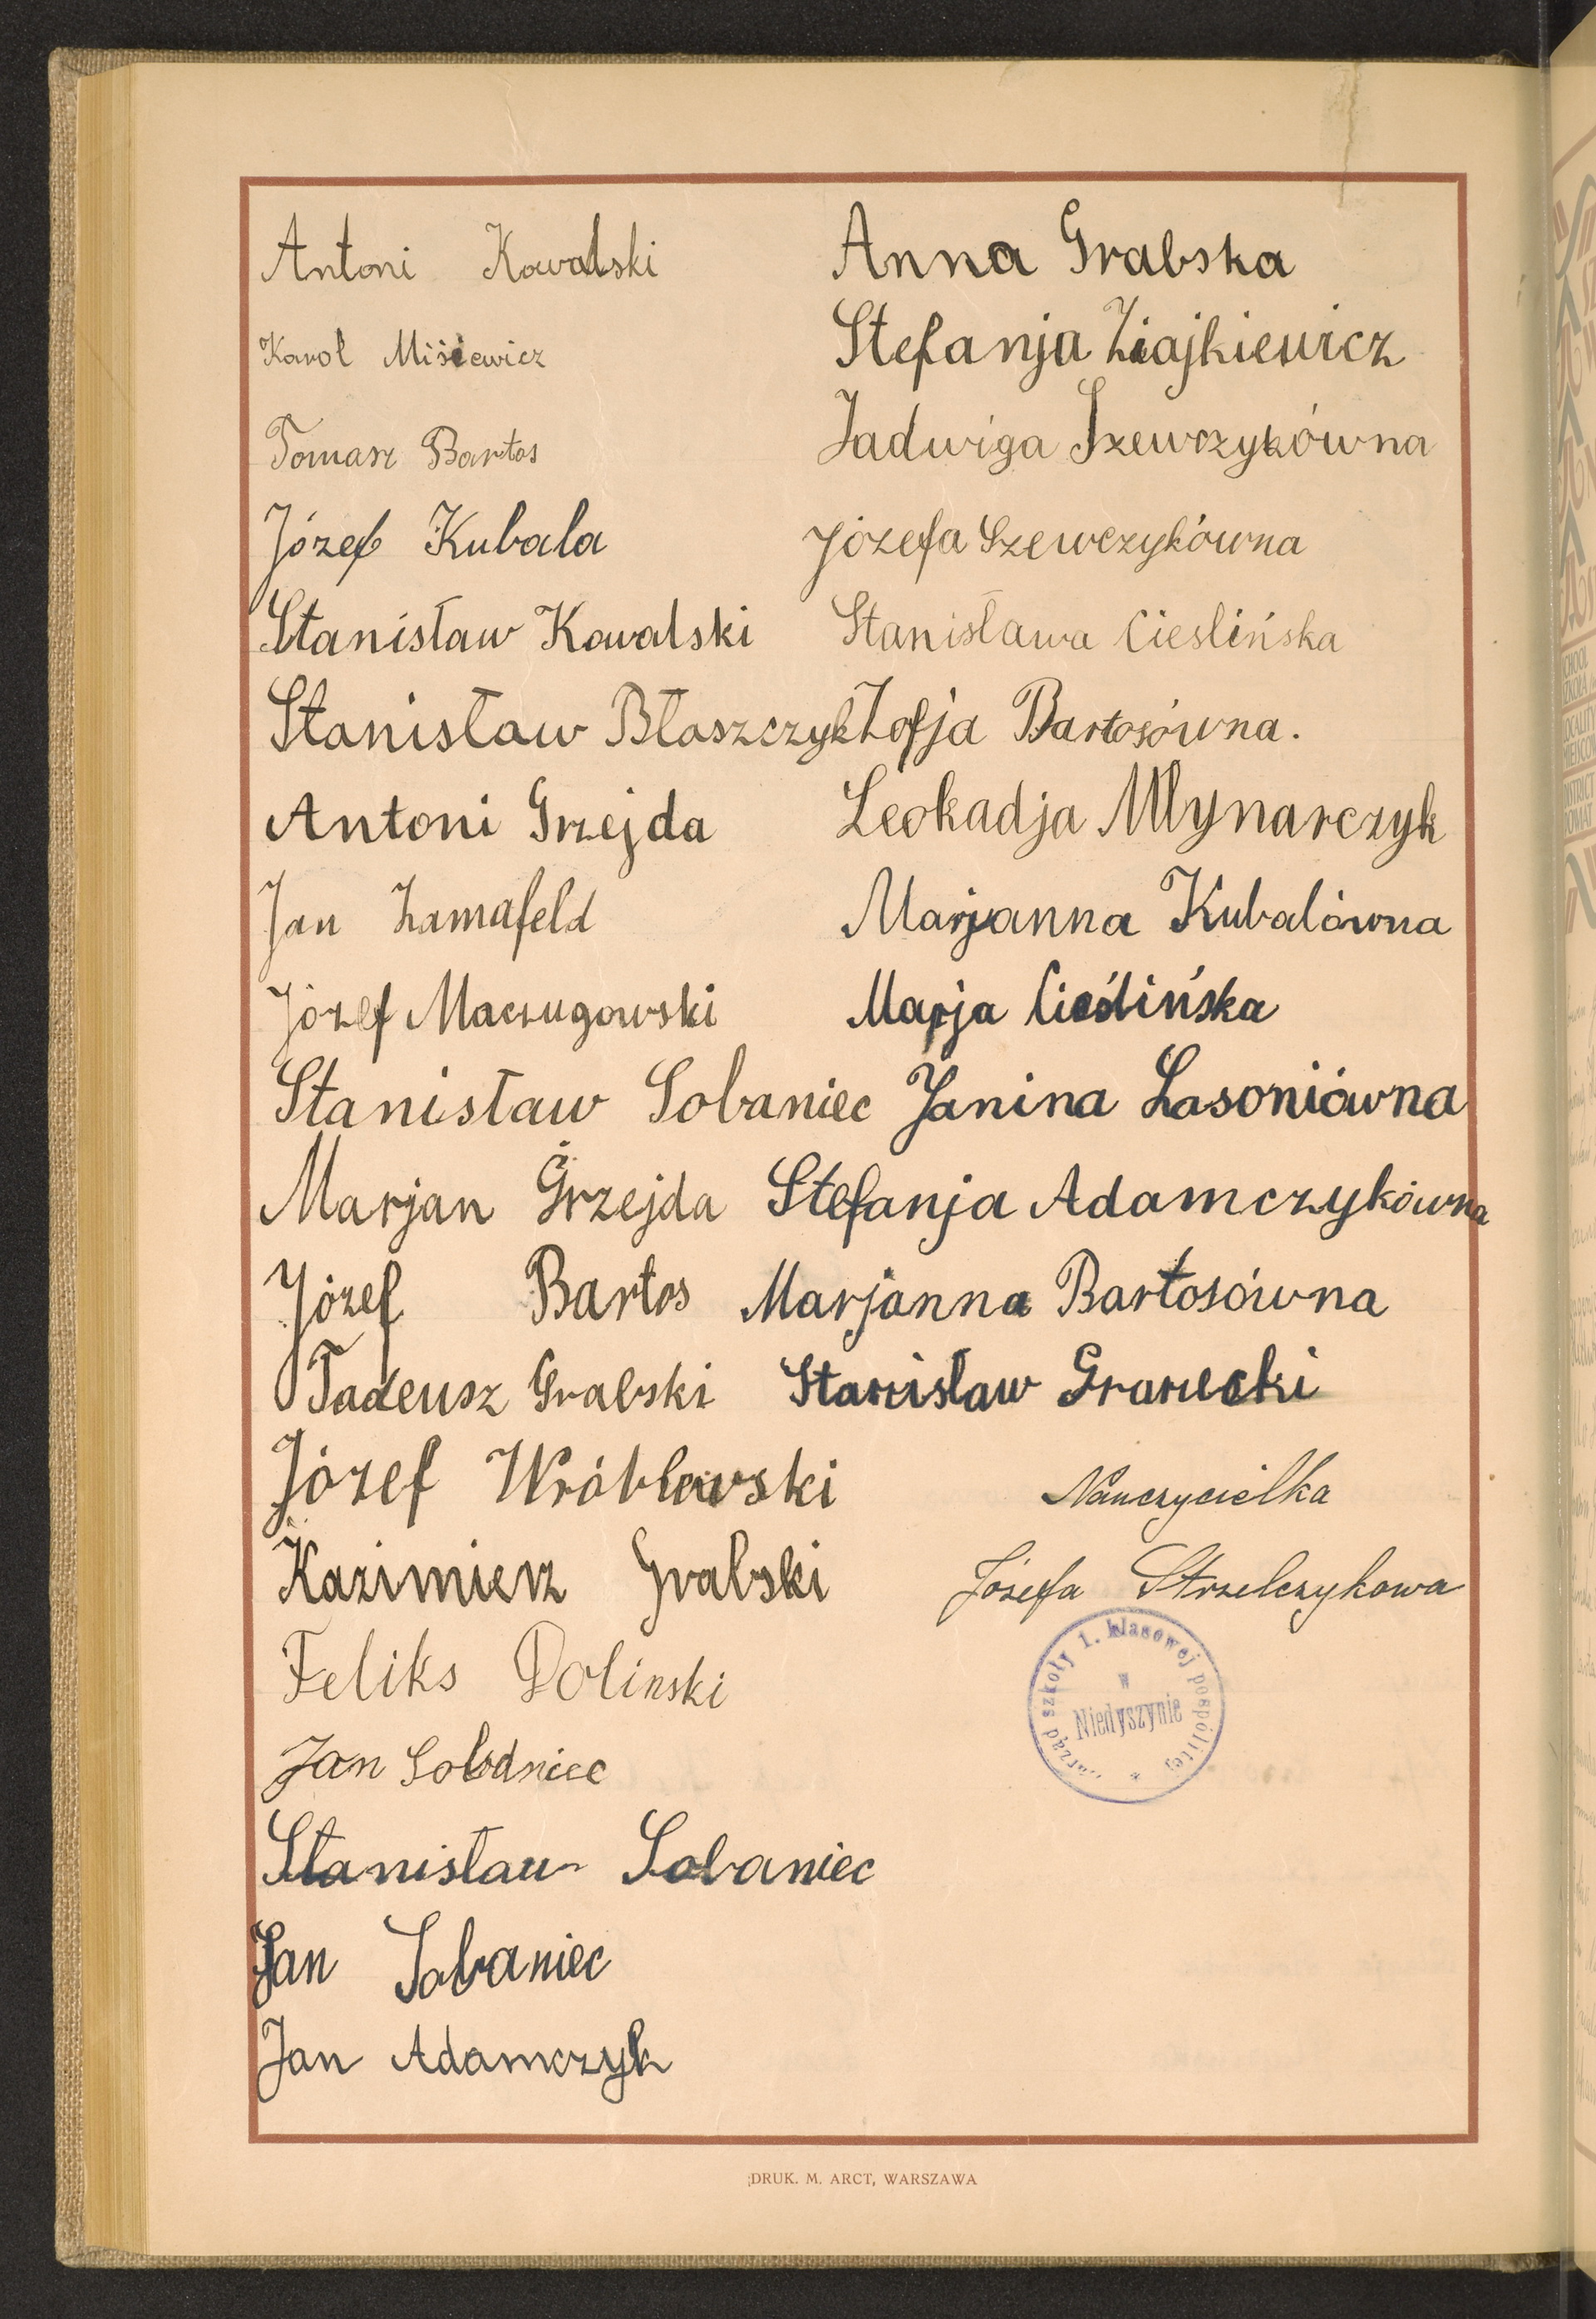 Antoni Kowalski
Karol Misiewicz
Tomasz Bartos
Józef Kubala
Stanisław Kowalski
Stanisław Błaszczyk
Antoni Grzejda
Jan Zamafeld
Józef Maczugowski
Stanisław Sobaniec
Marjan Grzejda
Józef Bartos
Tadeusz Grabski
Józef Wróblewski
Kazimierz Grabski
Feliks Dolinski
Jan Sobaniec
Stanisław Sobaniec
Jan Sobaniec
Jan Adamczyk
Anna Grabska
Stefanja Ziajkiewicz
Jadwiga Szewczykówna
Józefa Szewczykówna
Stanisława Cieslińska
Zofja Bartosówna.
Leokadja Młynarczyk
Marjanna Kubalówna
Marja Cieślińska
Janina Lasoniówna
Stefanja Adamczykówna
Marjanna Bartosówna
Stanisław Graniecki
Nauczycielka
Józefa Strzelczykowa
szkoły 1. klasowej pospolitej
w
Niedyszynie
*
DRUK. M. ARCT, WARSZAWA